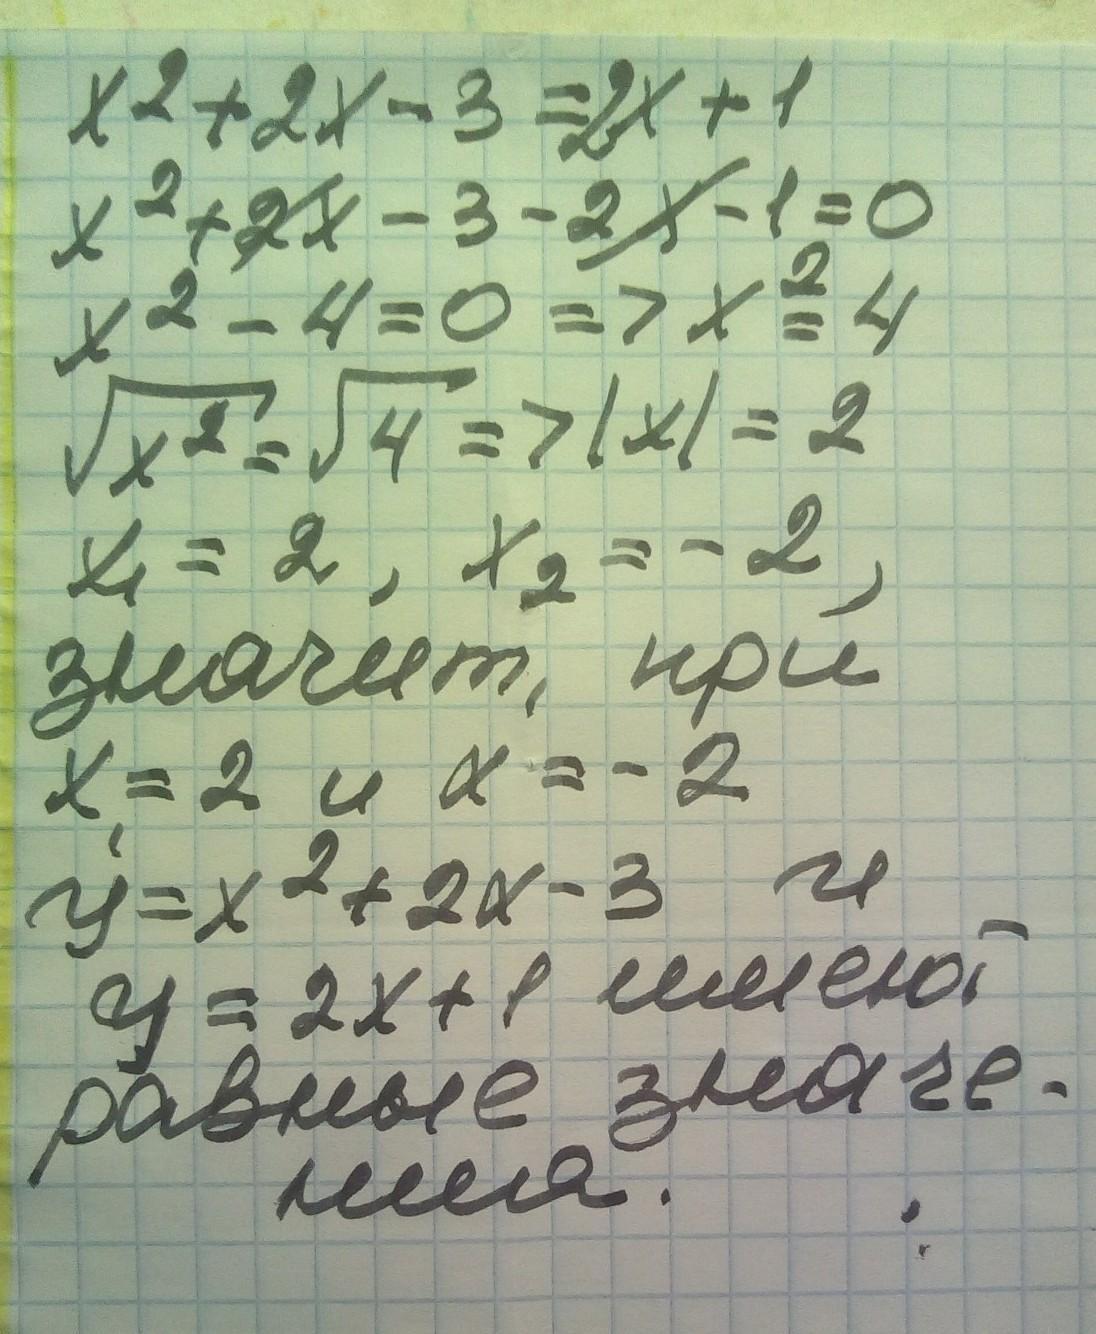 x² + 2x - 3 = 2x + 1
x² + 2x - 3 - 2x - 1 = 0
x² - 4 = 0 => x² = 4
√x² = √4 => |x| = 2
x₁ = 2, x₂ = -2,
значит, при
x = 2 и x = -2
y = x² + 2x - 3 и
y = 2x + 1 имеют
равные значе-
ния.